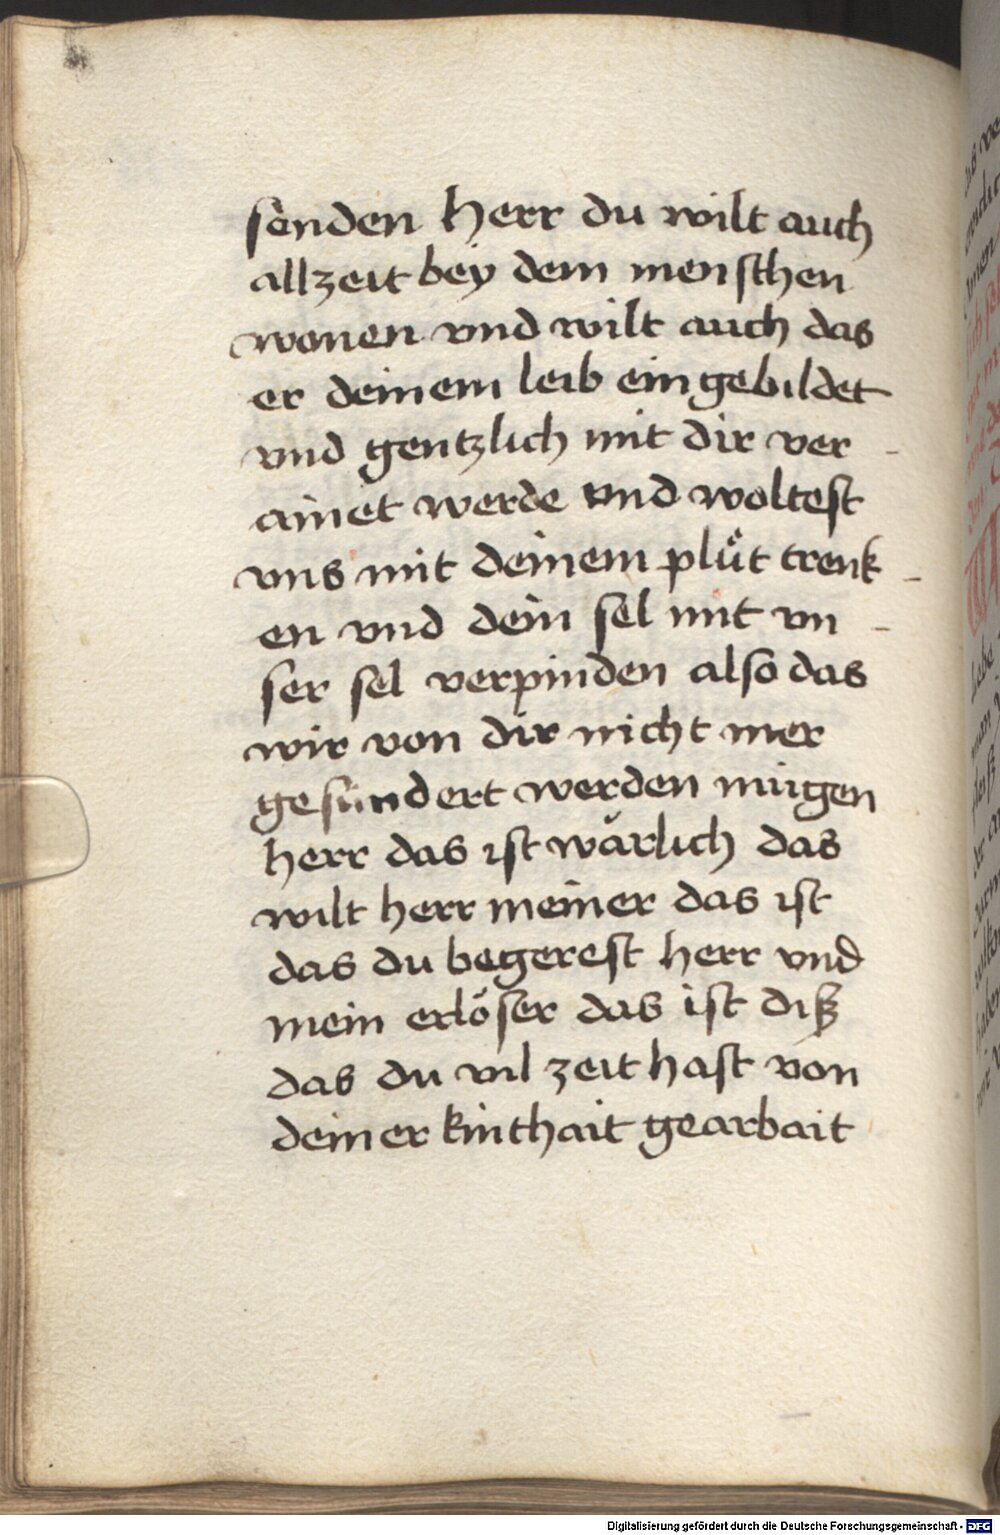 senden Herr du wilt auch
allzeit bey dem menschen
wonen vnd wilt auch das
er deinem leib eingebildet
vnd gentzlich mit dir ver-
ainet werde vnd woltest
vns mit deinem plůt trenk-
en vnd dein sel mit vn-
ser sel verpinden also das
wir von dir nicht mer
gesundert werden mügen
herr das ist wärlich das
wilt herr meiner das ist
das du begerest herr vnd
mein erlöser das ist diß
das du vil zeit hast von
deiner kinthait gearbait
Digitalisierung gefördert durch die Deutsche Forschungsgemeinschaft - DFG